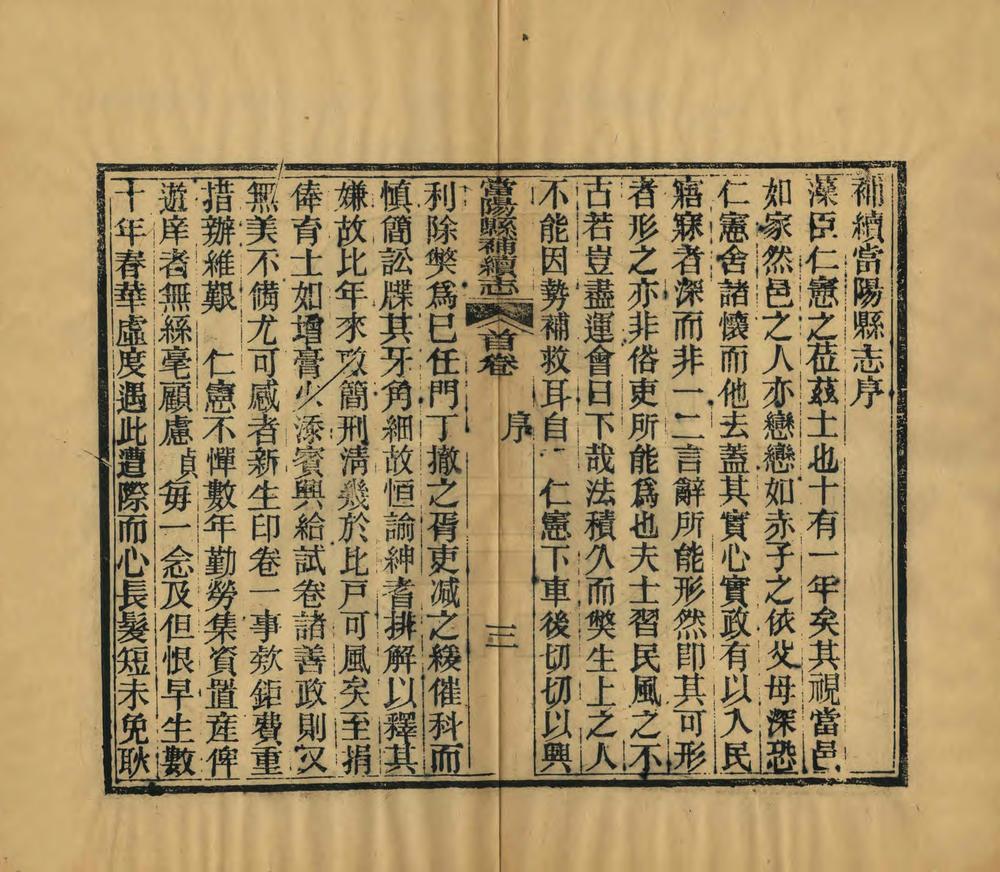 補續當陽縣志序
藻臣仁憲之蒞茲土也十有一年矣其視當邑
如家然邑之人亦戀戀如赤子之依父母深恐
仁憲舍諸懷而他去蓋其實心實政有以入民
寤寐者深而非一二言辭所能形然卽其可形
者形之亦非俗吏所能爲也夫士習民風之不
古若豈盡運會日下哉法積久而獘生上之人
不能因勢補救耳自 仁憲下車後切切以興
當陽縣補續志 首卷 序 三
利除獘爲已任門丁撤之胥吏减之緩催科而
慎簡訟牒其牙角細故恒諭紳耆排解以釋其
嫌故比年來政簡刑淸幾於比戸可風矣至捐
俸育士如增膏火添賓興給試卷諸善政則又
無美不備尤可感者新生印卷一事欵鉅費重
措辦維艱 仁憲不憚數年勤勞集資置産俾
遊庠者無絲毫顧慮貞每一念及但恨早生數
十年春華虛度遇此遭際而心長髮短未免耿